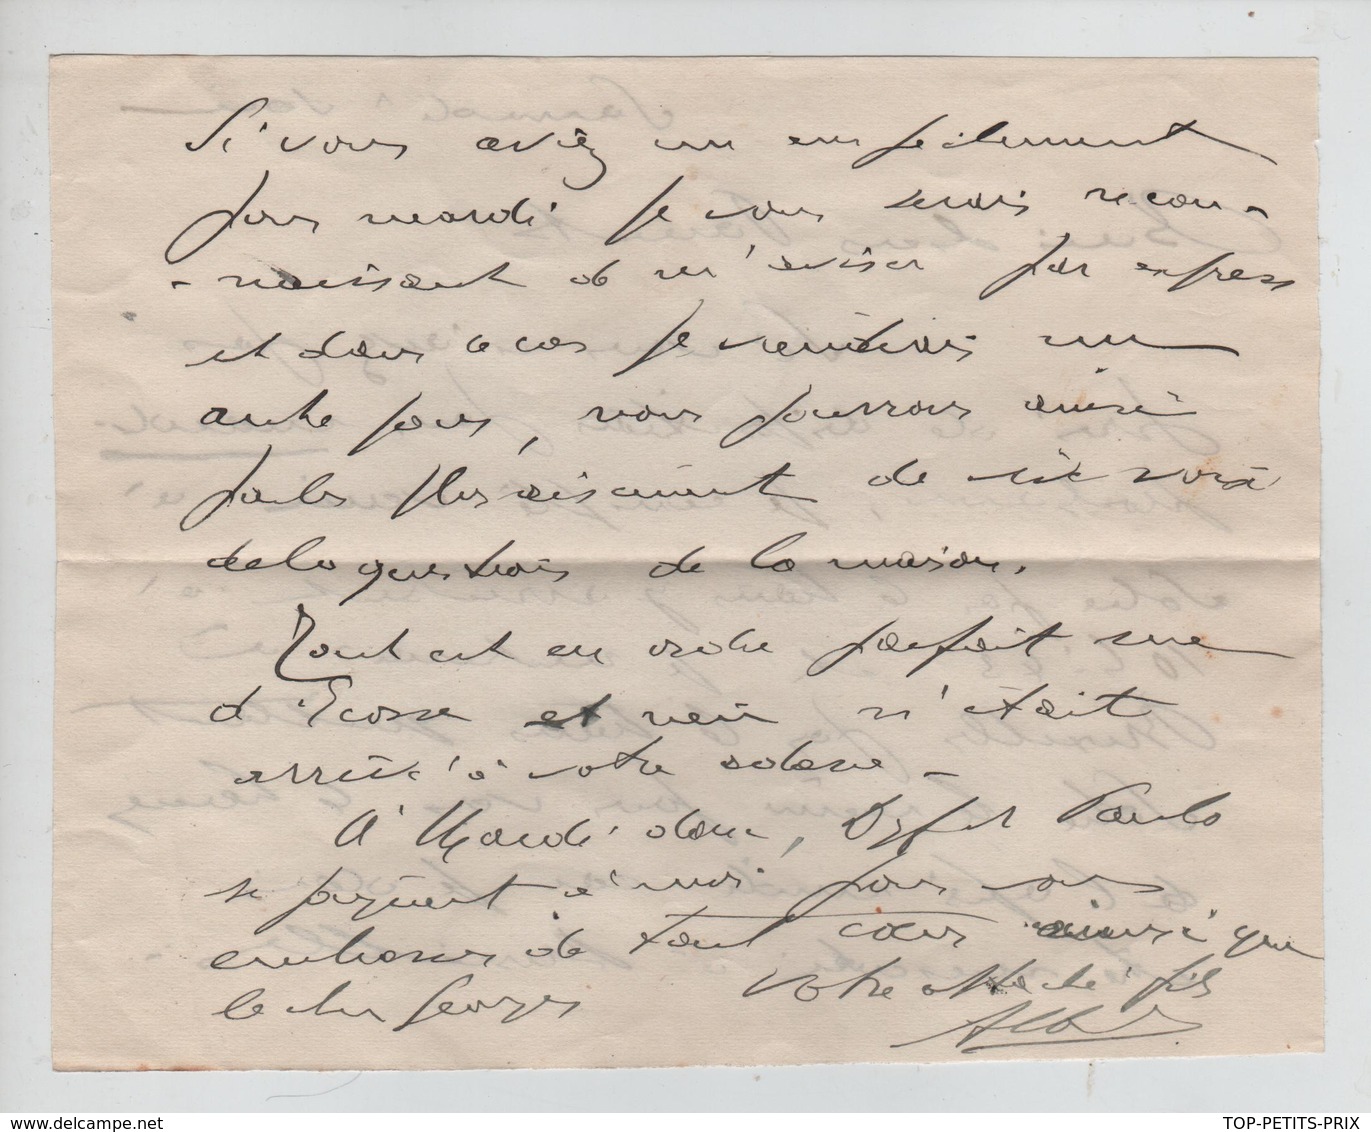 Si vous aviez un empêchement
pour mardi je vous serais recon-
-naissant de m'aviser par express
et dans ce cas je viendrais un
autre jour, nous pourrons ainsi
parler plus aisément de vive voix
de la question de la maison.
Tout est en ordre parfait rue
d'Ecosse et rien n'était
arrivé à votre adresse -
A Mardi donc, et Paulo
se joignent à moi pour vous
embrasser de tout cœur ainsi que
le cher Georges votre attaché fils
Alb
TOP-PETITS-PRIX